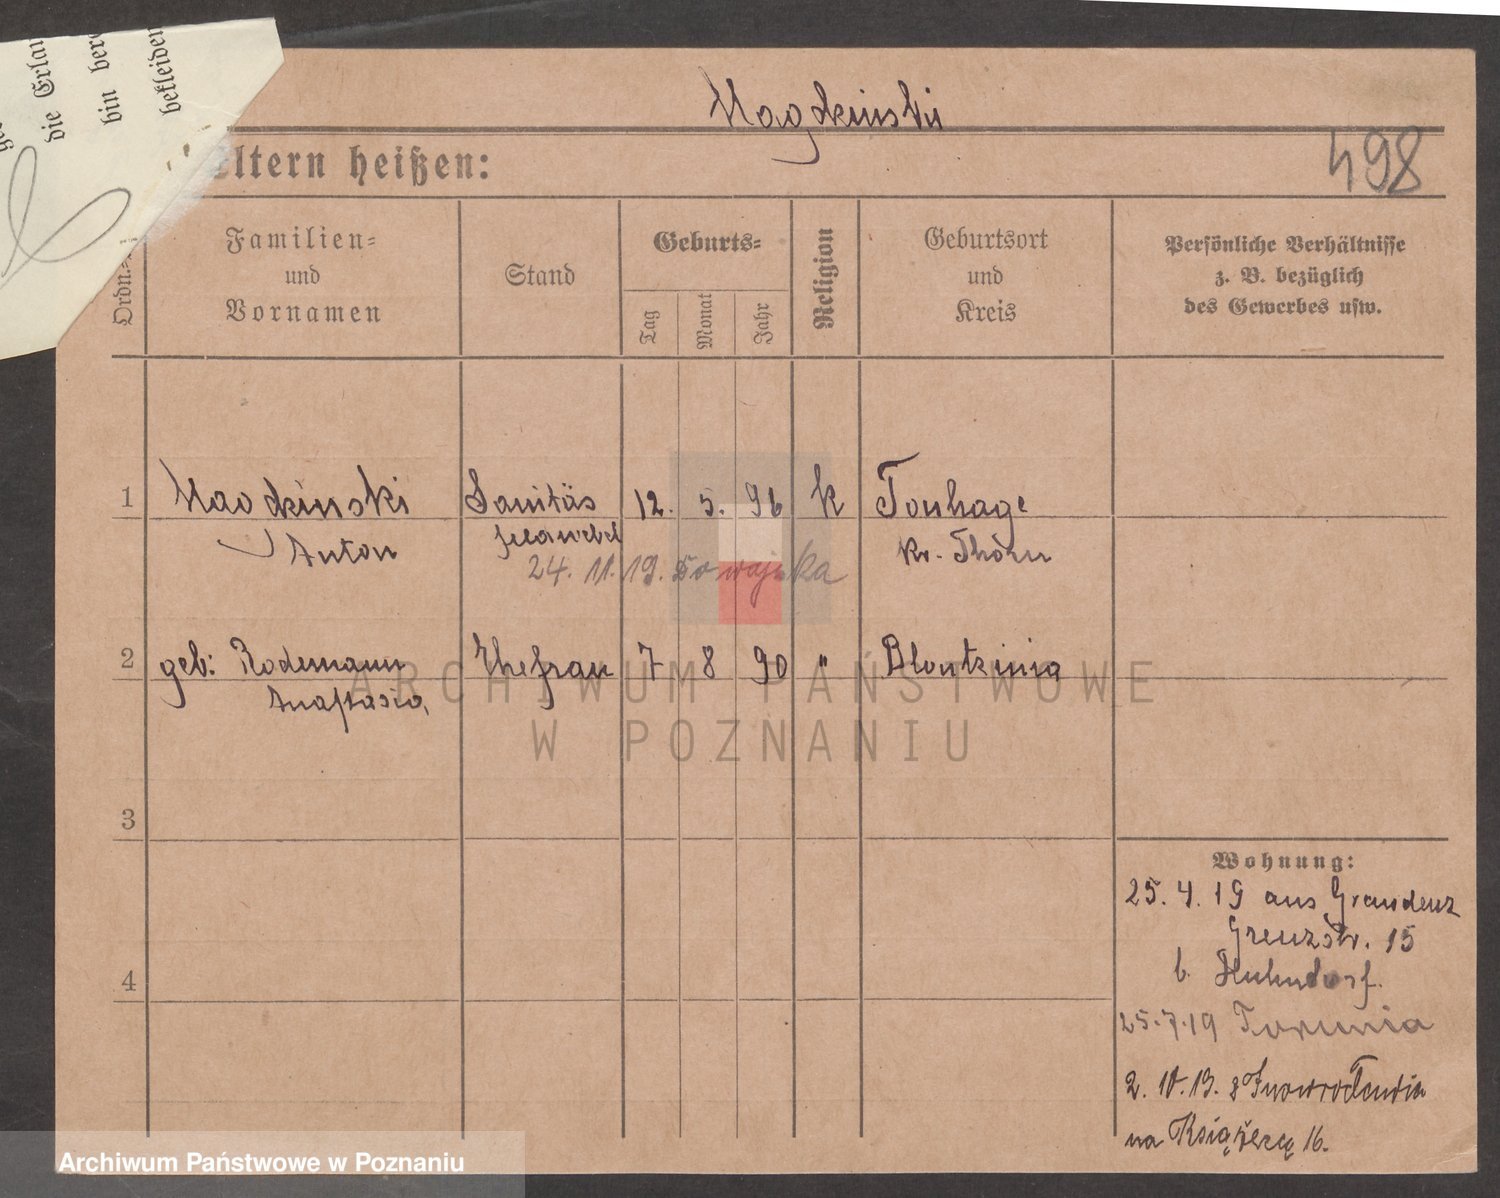 die Erlau
bin bere
bekleiden
Magdzinski
Eltern heißen:
498
Ordn.=
Familien=
und
Vornamen
Stand
Geburts=
Tag
Monat
Jahr
Religion
Geburtsort
und
Kreis
Persönliche Verhältnisse
z. B. bezüglich
des Gewerbes usw.
1 Magdzinski Sanitäs 12. 5. 96 k Tonhage
Anton kr. Thorn
24. 11. 19.
2 geb: Rodemann Ehefrau 7 8 90 " Blontzinia
Anastasia,
ARCHIWUM PAŃSTWOWE
W POZNANIU
3
Wohnung:
25. 4. 19 aus Graudenz
Grenzstr. 15
b.
4
25.7.19 Torunia
2. 10. 19. z Inowrocławia
na Książęcą 16.
Archiwum Państwowe w Poznaniu